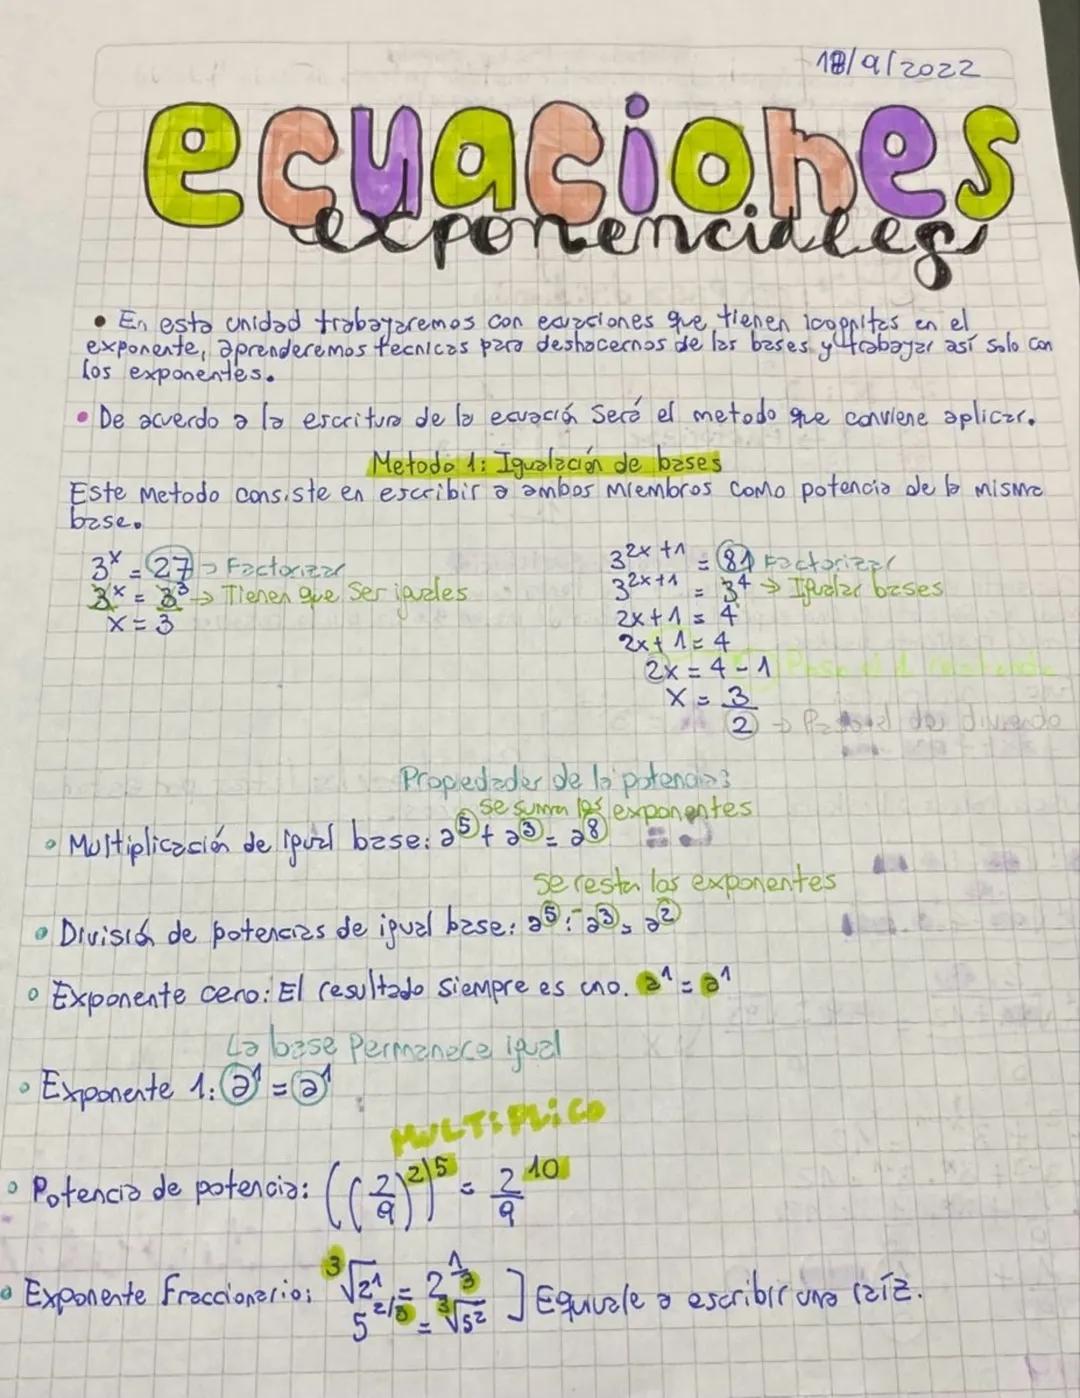 18/9/2022
ecuaciones
exponenciales
• En esta unidad trabajaremos con ecuaciones que tienen incognitas en el
exponente, aprenderemos tecnicas para deshacernos de las bases y trabajar así solo con
los exponentes.
• De acuerdo a la escritura de la ecuación Será el metodo que conviene aplicar.
Metodo 1: Igualación de bases
Este Metodo consiste en escribir a ambos miembros como potencia de la misma
base.
3^x = 27 → Factorizar
3^x = 3^3 → Tienen que Ser iguales
x = 3
3^{2x+1} = 81 Factorizar
3^{2x+1} = 3^4 → Igualar bases
2x+1 = 4
2x+1 = 4
2x = 4 - 1 Paso el 1 restando
x = 3/2 → Paso el dos dividendo
Propiedades de la potencia:
se suman los exponentes
• Multiplicación de igual base: a^5 + a^3 = a^8
se resta los exponentes
• División de potencias de igual base: a^5 : a^3 = a^2
• Exponente cero: El resultado siempre es uno. a^1 = a^1
La base Permanece igual
• Exponente 1: a^1 = a^1
MULTIPLICO
• Potencia de potencia: ((2/9)^2)^5 = 2/9^10
• Exponente Fraccionario: ∛2^1 = 2^{1/3} ] Equivale a escribir una raíz.
5^{2/3} = ∛5^2